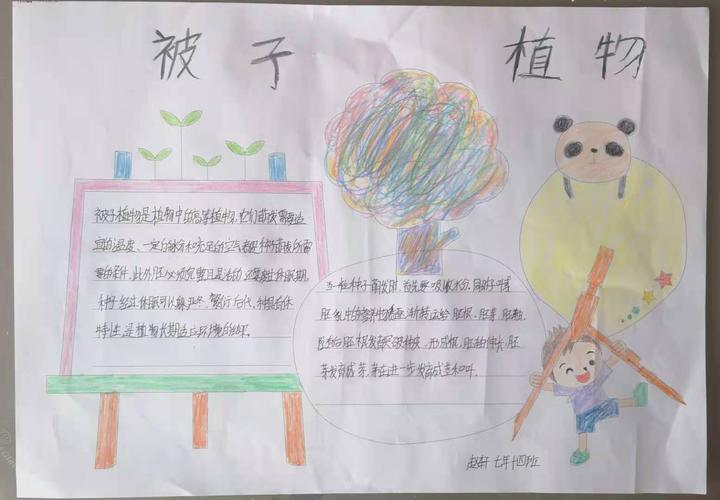 被子 植物
被子植物是植物中的高等植物,它们萌发需要适
宜的温度、一定的水分和充足的空气都是种子萌发所需
要的条件,此外胚必须完整且是活的,还要过休眠期。
种子经过休眠可以躲严冬、繁衍后代,种子的休
特性,是植物长期适应环境的结果。
当一粒种子萌发时,首先要吸收水分,同时子叶或
胚乳中的营养物质逐渐转运给胚根、胚芽、胚轴,
随后胚根发育,突破种皮,形成根,胚轴伸长,胚
芽发育成茎,芽在进一步发育成茎和叶。
赵轩 七年十四班